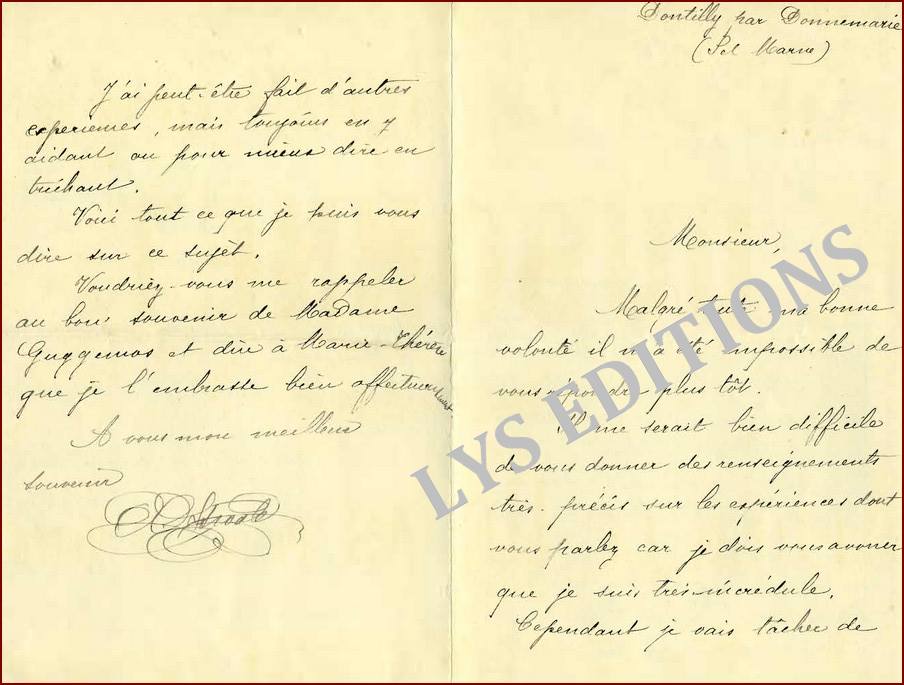 Dontilly par Donnemarie
(Sel Marne)
Monsieur,
Malgré toute ma bonne
volonté il m'a été impossible de
vous répondre plus tôt.
Il me serait bien difficile
de vous donner des renseignements
très précis sur les expériences dont
vous parlez car je dois vous avouer
que je suis très-incrédule.
Cependant je vais tâcher de
J'ai peut-être fait d'autres
experiences, mais toujours en y
aidant ou pour mieux dire en
trichant.
Voici tout ce que je puis vous
dire sur ce sujet.
Voudriez-vous me rappeler
au bon souvenir de Madame
Guggemos et dire à Marie-Thérèse
que je l'embrasse bien affectueusement.
A vous mon meilleur
souvenir
LYS EDITIONS